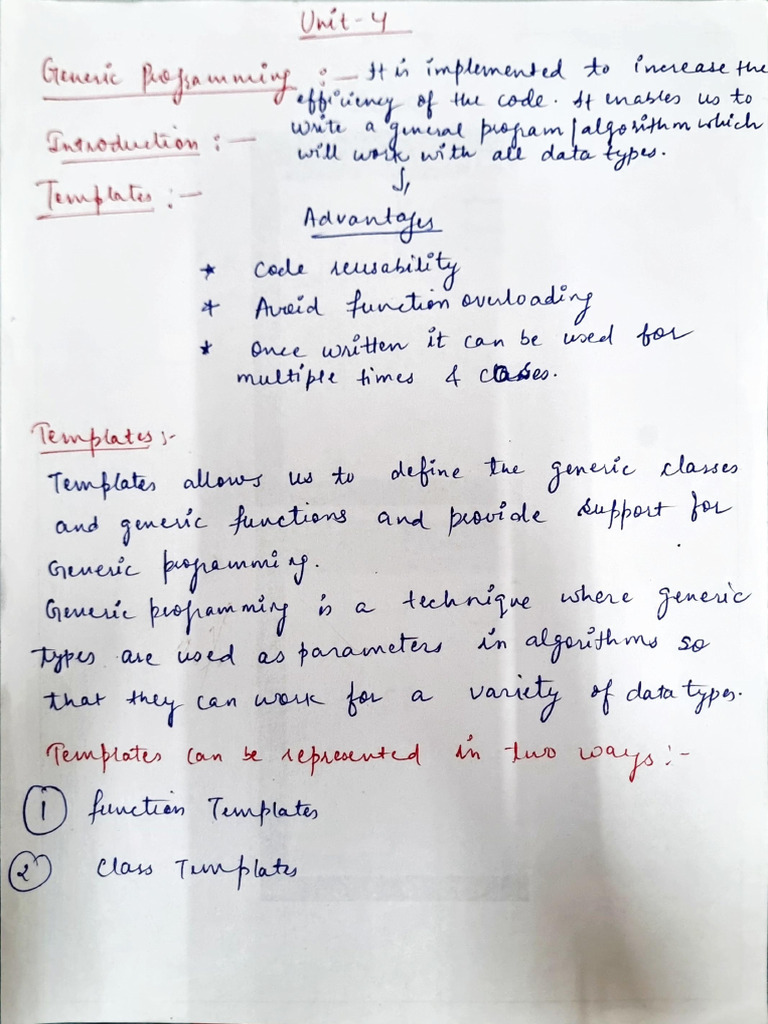 Unit-4
Generic Programming :- It is implemented to increase the
efficiency of the code. It enables us to
Introduction :- write a general program/algorithm which
will work with all data types.
Templates :-
Advantages
* Code reusability
* Avoid function overloading
* Once written it can be used for
multiple times & cases.
Templates :-
Templates allows us to define the generic classes
and generic functions and provide support for
Generic programming.
Generic programming is a technique where generic
types are used as parameters in algorithms so
that they can work for a variety of data types.
Templates can be represented in two ways :-
1 function Templates
2 Class Templates